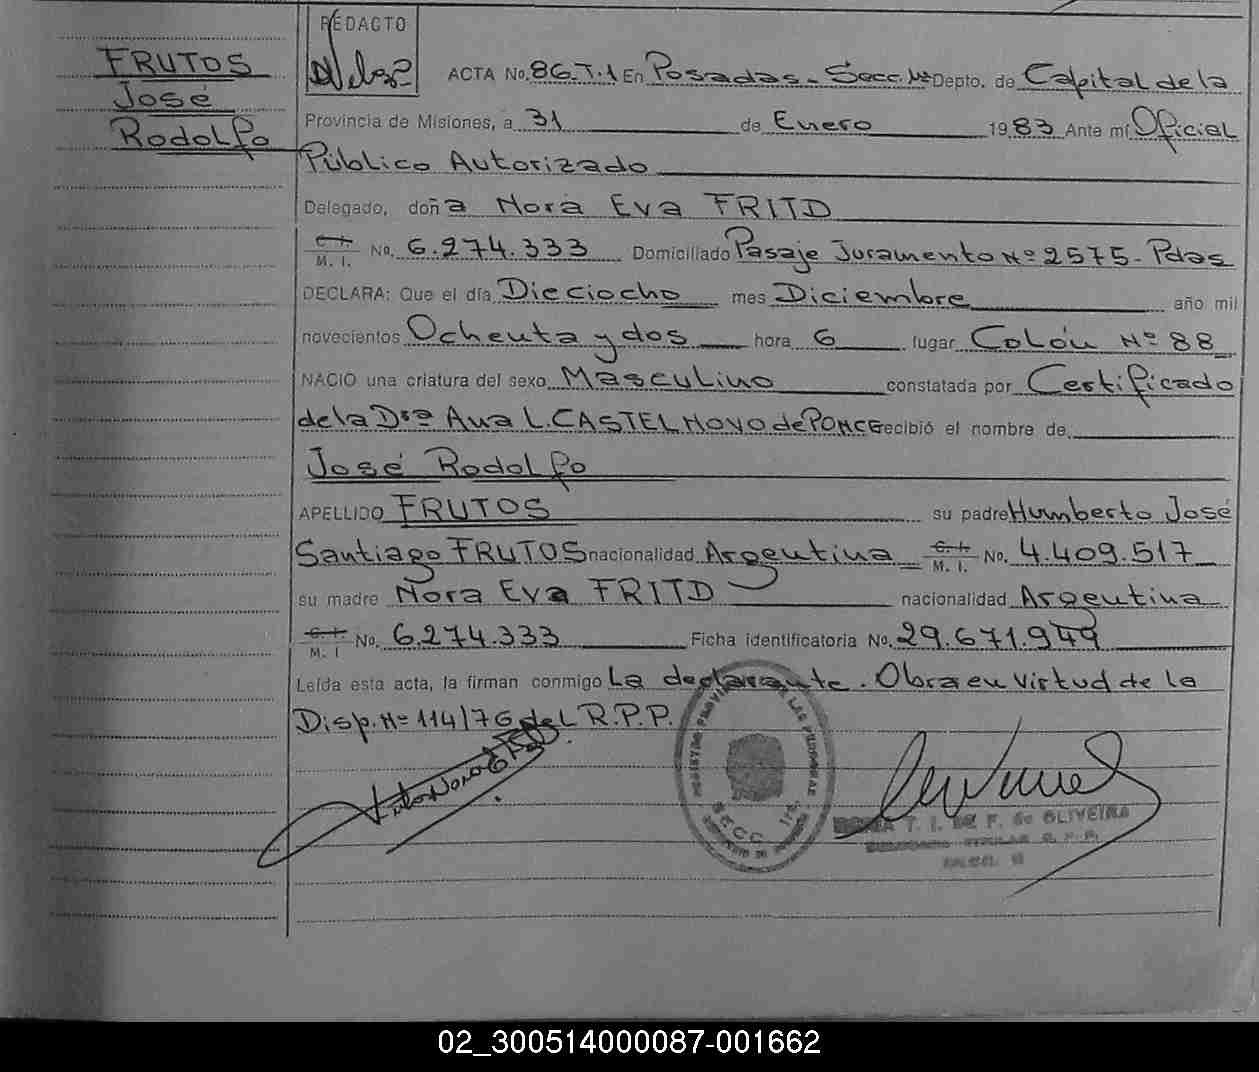 REDACTO
FRUTOS
José
Rodolfo
ACTA No. 86-T.1 En Posadas - Secc. 1ª Depto. de Capital de la
Provincia de Misiones, a 31 de Enero 1983 Ante mí Oficial
Público Autorizado
Delegado, doña Nora Eva FRITD
C. I. M. I. No. 6.274.333 Domiciliado Pasaje Juramento Nº 2575 - Pdas
DECLARA: Que el día Dieciocho mes Diciembre año mil
novecientos Ochenta y dos hora 6 lugar Colón Nº 88
NACIO una criatura del sexo Masculino constatada por Certificado
de la Drª Ana L. CASTELNOVO de PONCE recibió el nombre de
José Rodolfo
APELLIDO FRUTOS su padre Humberto José
Santiago FRUTOS nacionalidad Argentina C. I. M. I. No. 4.409.517
su madre Nora Eva FRITD nacionalidad Argentina
C. I. M. I No. 6.274.333 Ficha identificatoria No. 29.671.949
Leída esta acta, la firman conmigo La declarante. Obra en virtud de la
Disp. Nº 114/76 del R.P.P.
REGISTRO PROVINCIAL DE LAS PERSONAS
SECC. 1ra.
T. I. DE F. de OLIVEIRA
02_300514000087-001662